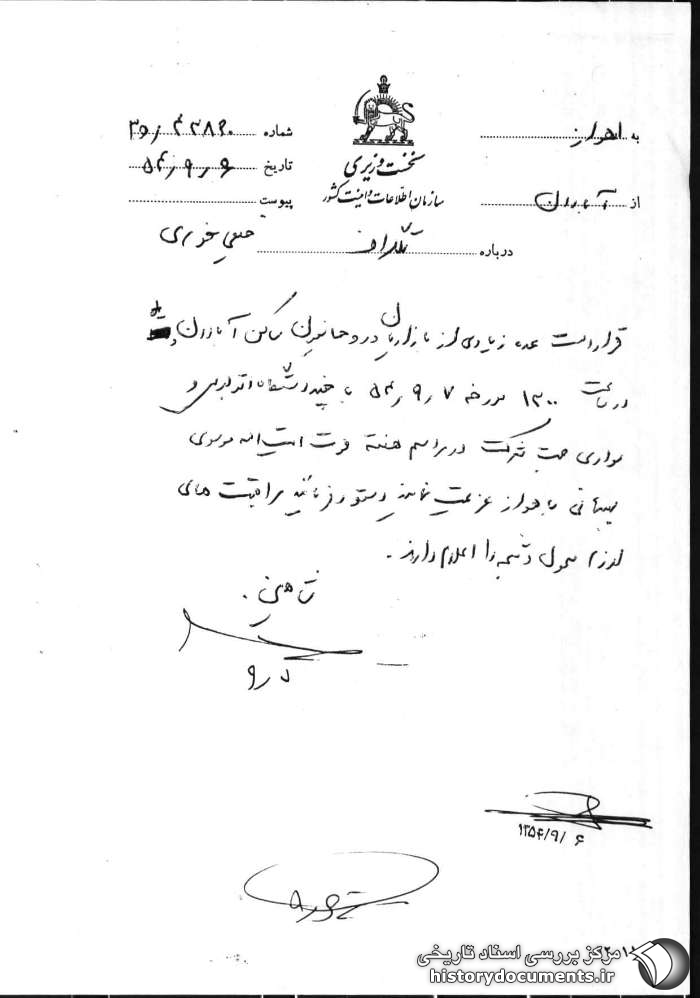 به اهواز
از آبادان
نخست وزیری
سازمان اطلاعات و امنیت کشور
شماره ۳۵٫۳۳۸۶۰
تاریخ ۵۴٫۹٫۶
پیوست
درباره تلگراف خیلی فوری
قرار است عده زیادی از بازاریان و روحانیون ساکن آبادان
در ساعت ۱۳۰۰ مورخه ۵۴٫۹٫۷ با چند دستگاه اتوبوس و
سواری جهت شرکت در مراسم هفته فوت آیت اله موسوی
بهبهانی باهواز عزیمت نمایند دستور فرمائید مراقبت های
لازم معمول و نتیجه را اعلام دارند.
۵٫۹
۱۳۵۴/۹/۶
مرکز بررسی اسناد تاریخی
historydocuments.ir